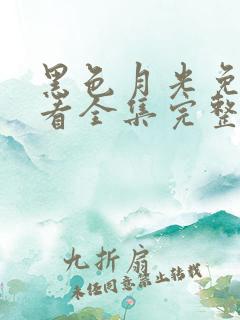 黑色月光免
看全集完整
九折扇
未经同意禁止转载